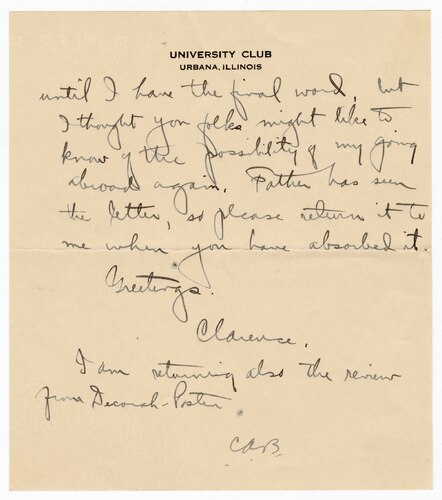 UNIVERSITY CLUB
URBANA, ILLINOIS
until I have the final word, but
I thought you folks might like to
know of the possibility of my going
abroad again. Father has seen
the letter, so please return it to
me when you have absorbed it.
Greetings.
Clarence.
I am returning also the review
from Decorah-Posten
C.A.B.